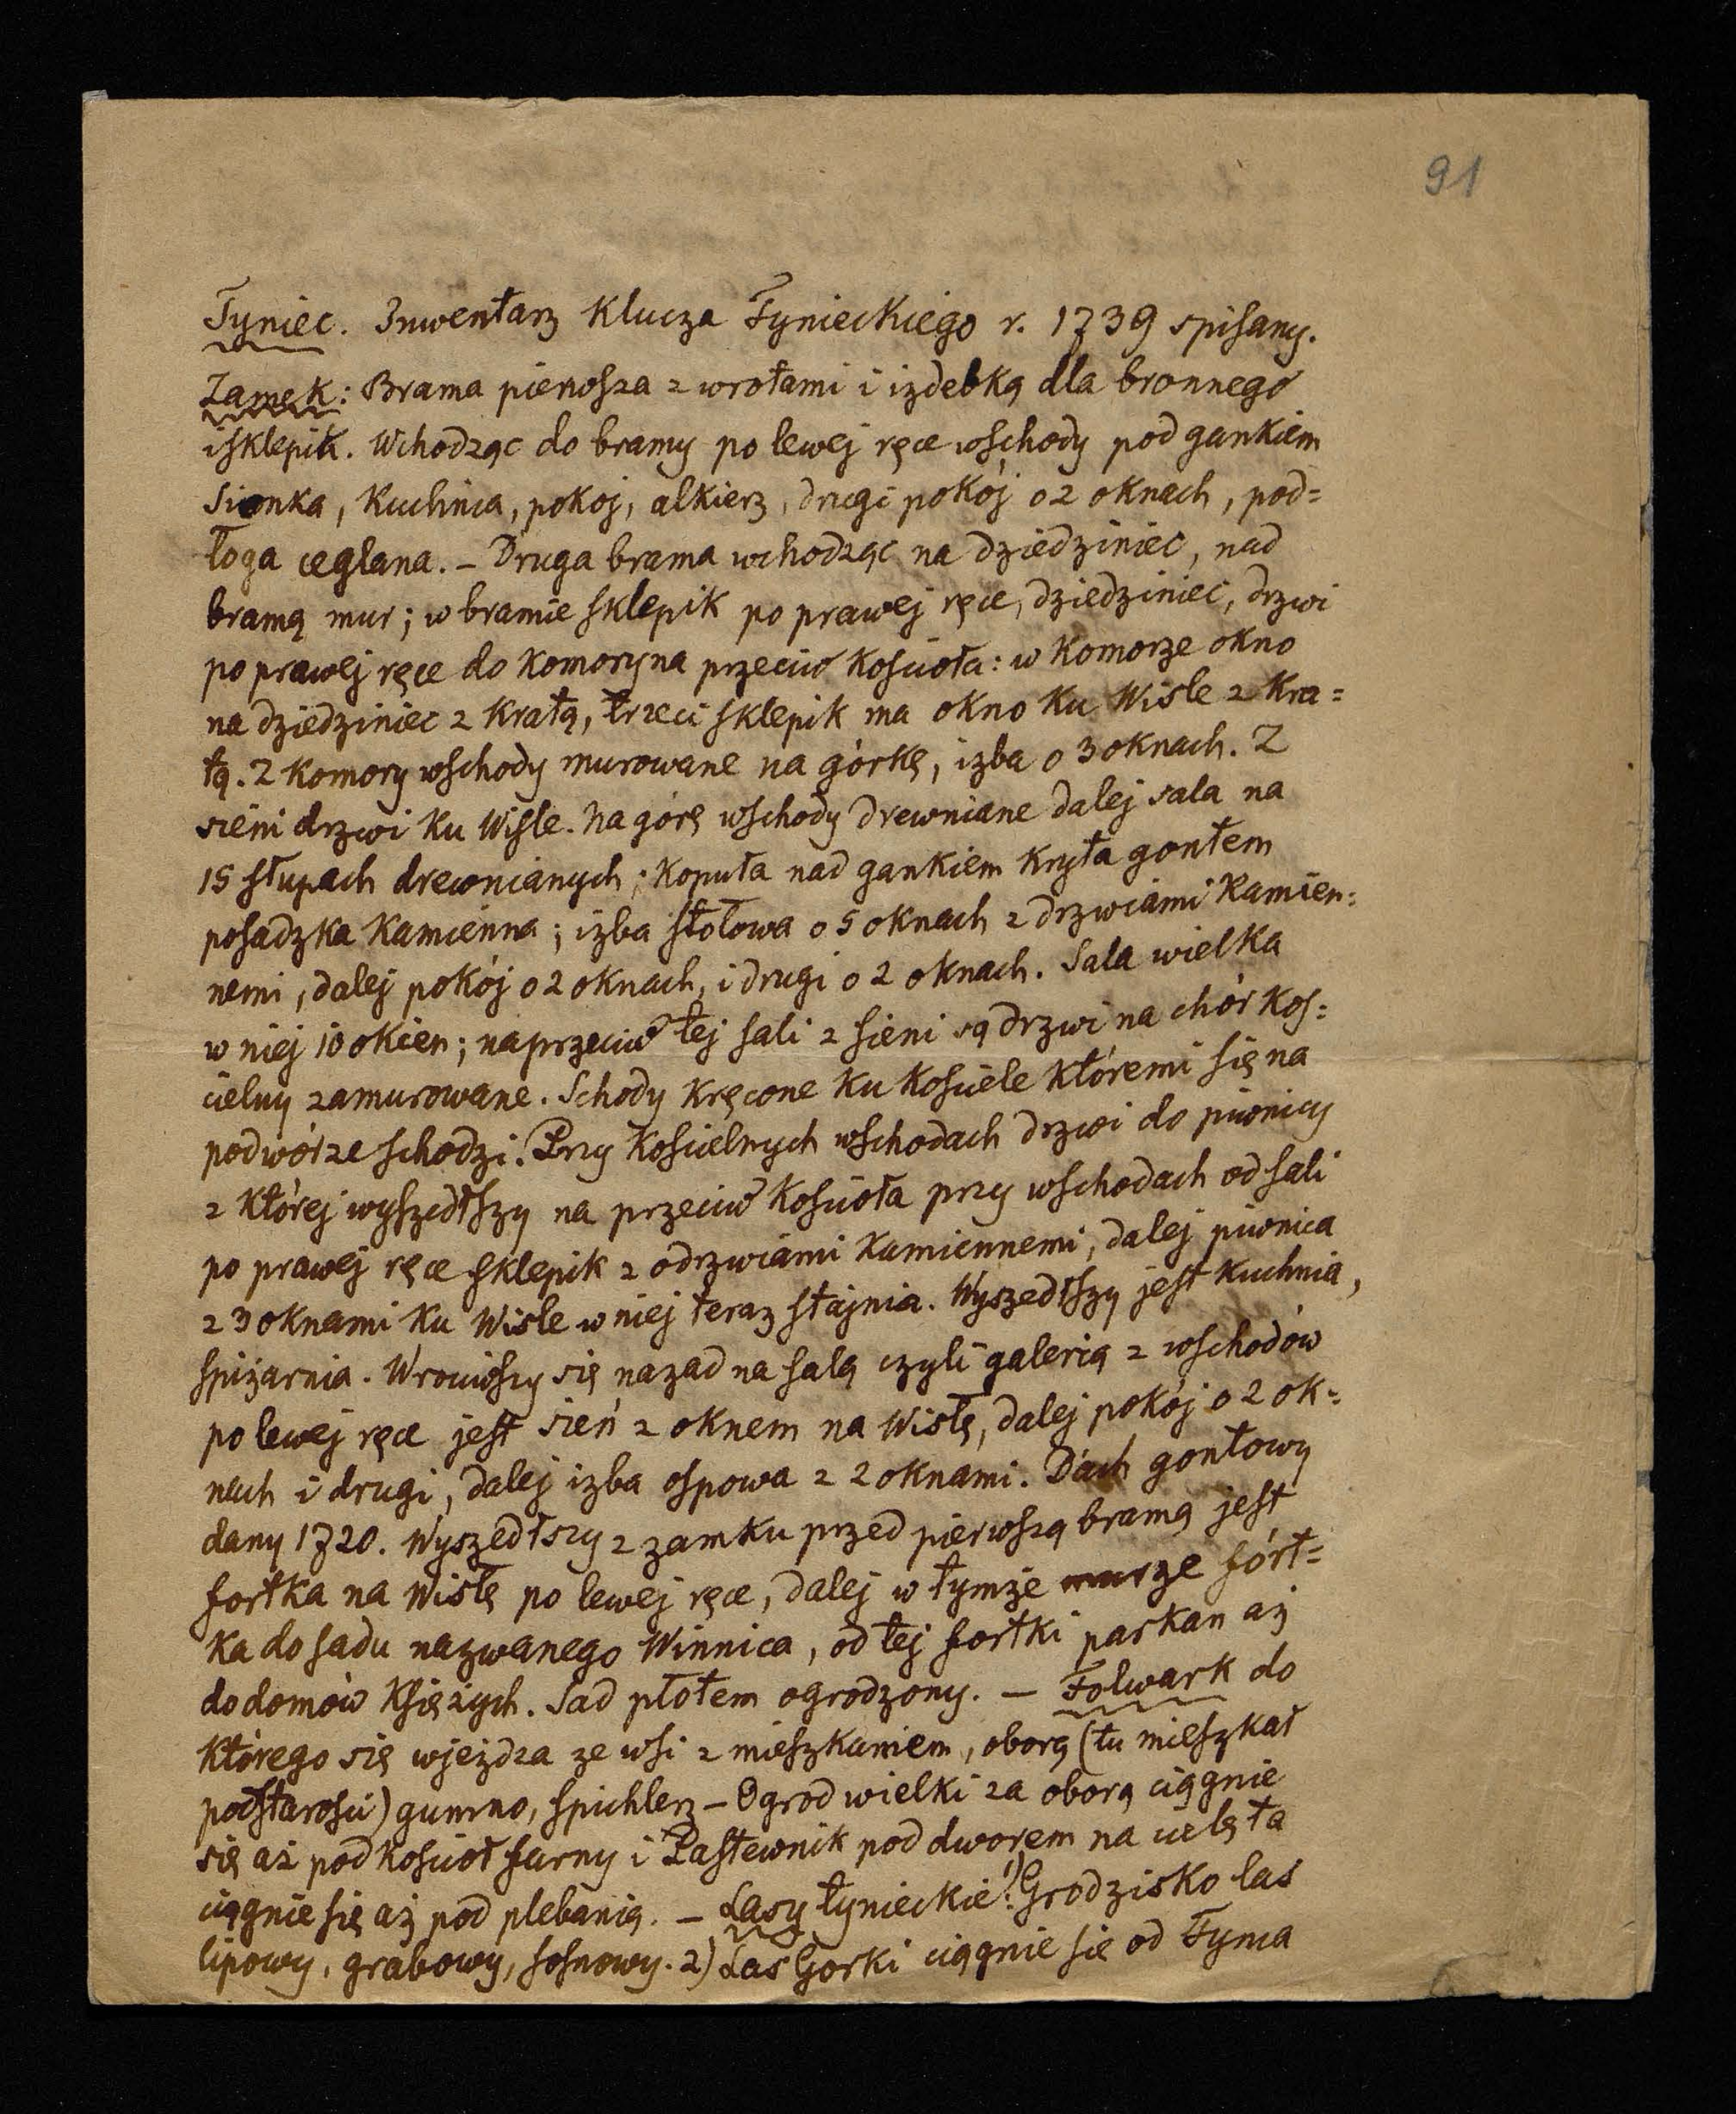 91
Tyniec. Inwentarz Klucza Tynieckiego r. 1739 spisany.
Zamek: Brama pierwsza z wrotami i izdebką dla bronnego
i sklepik. Wchodząc do bramy po lewej ręce wschody pod gankiem
Sionka, Kuchnia, pokoj, alkierz, drugi pokój o 2 oknach, pod=
łoga ceglana. – Druga brama wchodząc na dziedziniec, nad
bramą mur; w bramie sklepik po prawej ręce, dziedziniec, drzwi
po prawej ręce do komory na przeciw kościoła: w komorze okno
na dziedziniec z kratą, trzeci sklepik ma okno ku Wisle z kra=
tą. Z komory wschody murowane na górkę, izba o 3 oknach. Z
sieni drzwi ku Wisle. Na górę wschody drewniane dalej sala na
15 słupach drewnianych; kopuła nad gankiem kryta gontem
posadzka kamienna; izba stołowa o 5 oknach z drzwiami kamien=
nemi, dalej pokój o 2 oknach, i drugi o 2 oknach. Sala wielka
w niej 10 okien; naprzeciw tej sali z sieni są drzwi na chór koś=
cielny zamurowane. Schody kręcone ku kościele któremi się na
podwórze schodzi. Przy kościelnych wschodach drzwi do piwnicy
z której wyszedłszy na przeciw kościoła przy wschodach od sali
po prawej ręce sklepik z odrzwiami kamiennemi, dalej piwnica
z 3 oknami ku Wisle w niej teraz stajnia. Wyszedłszy jest kuchnia,
spiżarnia. Wrociwszy się nazad na salą czyli galerią z wschodów
po lewej ręce jest sień z oknem na Wisłę, dalej pokój o 2 ok=
nach i drugi, dalej izba ospowa z 2 oknami. Dach gontowy
dany 1720. Wyszedłszy z zamku przed pierwszą bramą jest
fortka na Wisłę po lewej ręce, dalej w tymże murze fórt=
ka do sadu nazwanego Winnica, od tej fortki parkan aż
do domów Księżych. Sad płotem ogrodzony. – Folwark do
którego się wjeżdza ze wsi z mieszkaniem, oborą (tu mieszkał
podstarości) gumno, spichlerz – Ogrod wielki za oborą ciągnie
się aż pod kościoł farny i Pastewnik pod dworem na cielęta
ciągnie się aż pod plebanią. – Lasy tynieckie: 1) Grodzisko las
lipowy, grabowy, sosnowy. 2) Las Gorki ciągnie się od Tyńca